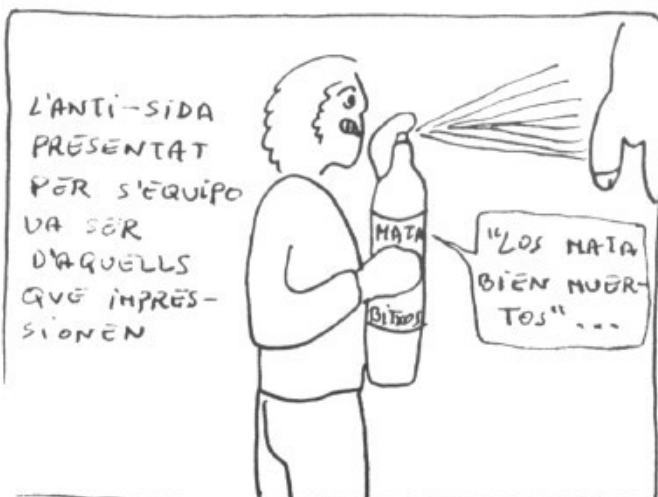 L'ANTI-SIDA
PRESENTAT
PER S'EQUIPO
VA SER
D'AQUELLS
QUE IMPRES-
SIONEN
MATA
BITXOS
"LOS MATA
BIEN MUER-
TOS"...